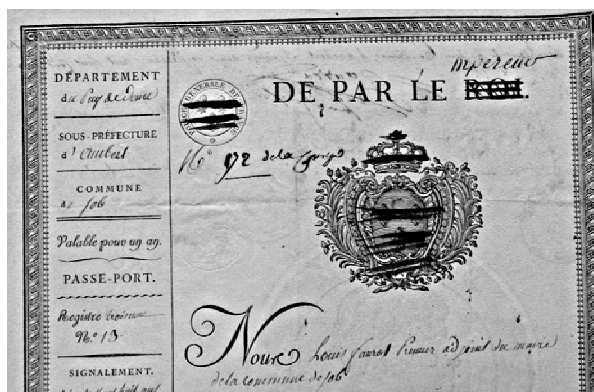 DÉPARTEMENT
du Puy de Dome
SOUS-PRÉFECTURE
d'Ambert
COMMUNE
de Job
Valable pour un an.
PASSE-PORT.
Registre troisieme
N.º 13
SIGNALEMENT.
DE PAR LE ROI.
mpereur
Nº 92 de la
Nous Louis premier adjoint du maire
de la commune de job